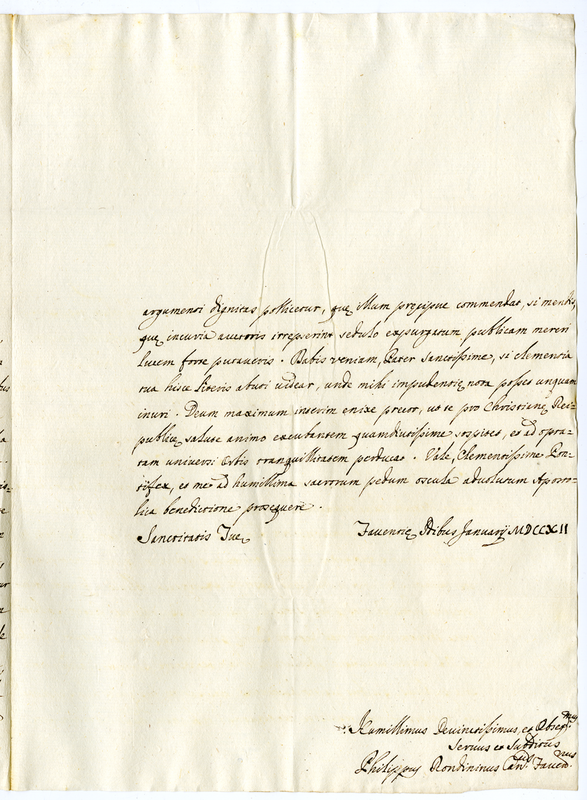 argumenti dignitas pollicetur, quę illum pręcipue commendat, si mendis,
quę incuria auctoris irrepserint sedulo expurgatum publicam mereri
lucem forte putaveris. Dabis veniam, Pater Sanctissime, si clementia
tua hisce literis abuti videar, unde mihi impudentię nota posset unquam
inuri. Deum maximum interim enixe precor, uo te pro Christianę Rei-
publicę salute animo excubantem quamdiutissime sospitet, et ad opta-
tam universi Orbis tranquillitatem perducat. Vale, Clementissime Pon-
tifex, et me ad humillima sacrorum pedum oscula advolutum Aposto-
lica benedictione prosequere.
Sanctitatis Tuę
Faventię Idibus Januarij MDCCXII
Humillimus Devinctissimus, et Obseqmus
Servus et Subditus
Philippus Rondininus Canus Faventnus